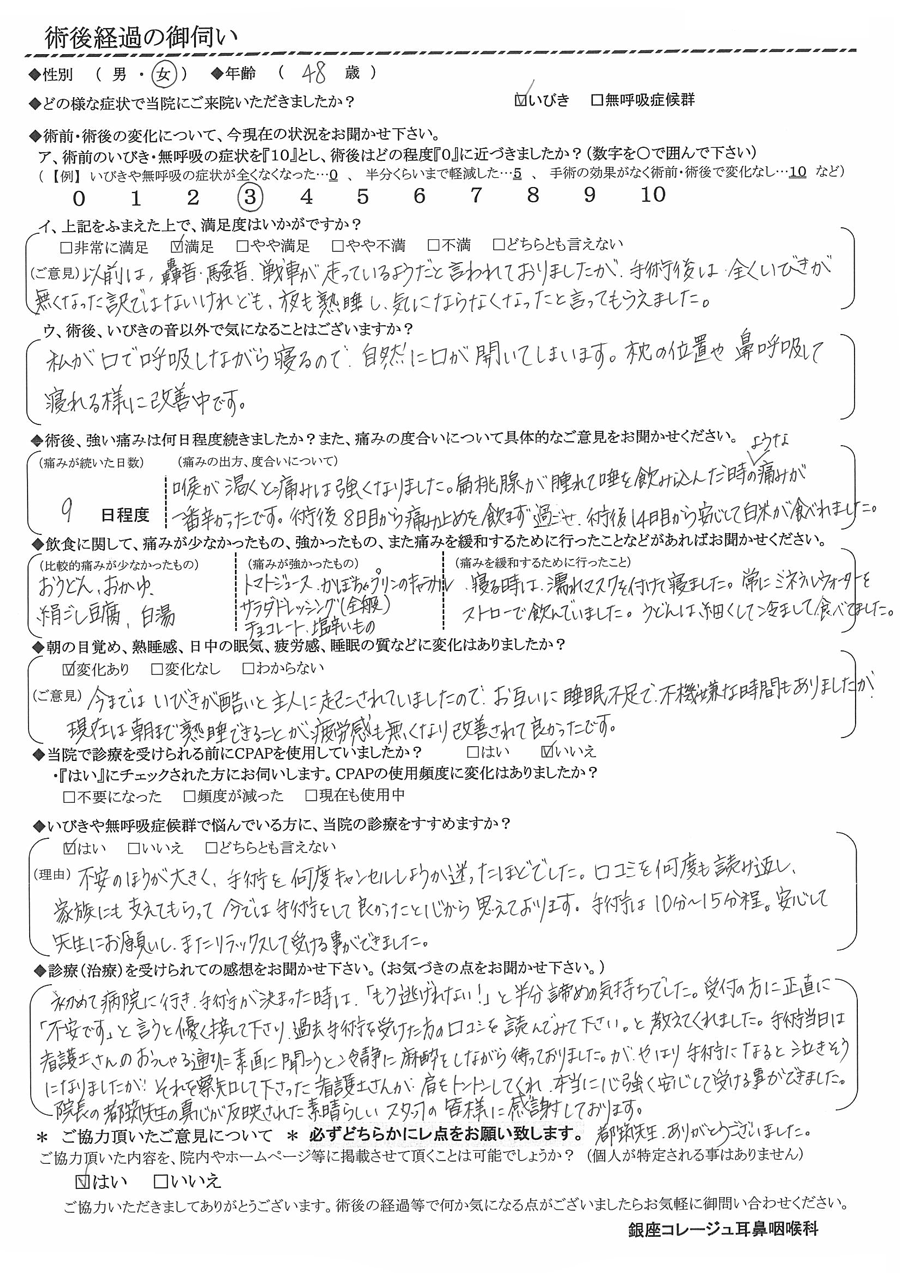 術後経過の御伺い
◆性別 ( 男 ・ 女 ) ◆年齢 ( 48 歳 )
◆どの様な症状で当院にご来院いただきましたか? ☑いびき □無呼吸症候群
◆術前・術後の変化について、今現在の状況をお聞かせ下さい。
ア、術前のいびき・無呼吸の症状を『10』とし、術後はどの程度『0』に近づきましたか?(数字を○で囲んで下さい)
(【例】 いびきや無呼吸の症状が全くなくなった…0 、 半分くらいまで軽減した…5 、 手術の効果がなく術前・術後で変化なし…10 など)
0 1 2 3 4 5 6 7 8 9 10
イ、上記をふまえた上で、満足度はいかがですか?
□非常に満足 ☑満足 □やや満足 □やや不満 □不満 □どちらとも言えない
(ご意見) 以前は、轟音・騒音、戦車が走っているようだと言われておりましたが、手術後は全くいびきが
無くなった訳ではないけれども、夜も熟睡し、気にならなくなったと言ってもらえました。
ウ、術後、いびきの音以外で気になることはございますか?
私が口で呼吸しながら寝るので、自然に口が開いてしまいます。枕の位置や鼻呼吸して
寝れる様に改善中です。
◆術後、強い痛みは何日程度続きましたか?また、痛みの度合いについて具体的なご意見をお聞かせください。
(痛みが続いた日数) (痛みの出方、度合いについて)
喉が渇くと痛みは強くなりました。扁桃腺が腫れて唾を飲み込んだ時のような痛みが
9 日程度 一番辛かったです。術後8日目から痛み止めを飲まず過ごせ、術後14日目から安心して白米が食べれました。
◆飲食に関して、痛みが少なかったもの、強かったもの、また痛みを緩和するために行ったことなどがあればお聞かせください。
(比較的痛みが少なかったもの) (痛みが強かったもの) (痛みを緩和するために行ったこと)
おうどん、おかゆ、 トマトジュース、かぼちゃプリンのキャラメル 寝る時は、濡れマスクを付けて寝ました。常にミネラルウォーターを
絹ごし豆腐、白湯 サラダドレッシング(全般) ストローで飲んでいました。うどんは細くして冷まして食べてました。
チョコレート、塩辛いもの
◆朝の目覚め、熟睡感、日中の眠気、疲労感、睡眠の質などに変化はありましたか?
☑変化あり □変化なし □わからない
(ご意見) 今まではいびきが酷いと主人に起こされていましたので、お互いに睡眠不足で、不機嫌な時間もありましたが、
現在は朝まで熟睡できることが、疲労感も無くなり改善されて良かったです。
◆当院で診療を受けられる前にCPAPを使用していましたか? □はい ☑いいえ
・『はい』にチェックされた方にお伺いします。CPAPの使用頻度に変化はありましたか?
□不要になった □頻度が減った □現在も使用中
◆いびきや無呼吸症候群で悩んでいる方に、当院の診療をすすめますか?
☑はい □いいえ □どちらとも言えない
(理由) 不安のほうが大きく、手術を何度キャンセルしようか迷ったほどでした。口コミを何度も読み返し、
家族にも支えてもらって今では手術をして良かったと心から思えております。手術は10分〜15分程。安心して
先生にお願いし、またリラックスして受ける事ができました。
◆診療(治療)を受けられての感想をお聞かせ下さい。(お気づきの点をお聞かせ下さい。)
初めて病院に行き、手術が決まった時は、「もう逃げれない!」と半分諦めの気持ちでした。受付の方に正直に
「不安です」と言うと優く接して下さり、過去手術を受けた方の口コミを読んでみて下さい。と教えてくれました。手術当日は
看護士さんのおっしゃる通りに素直に聞こうと冷静に麻酔をしながら待っておりました。が、やはり手術になると泣きそう
になりましたが、それを察知して下さった看護士さんが、肩をトントンしてくれ、本当に心強く安心して受ける事ができました。
院長の都筑先生の真心が反映された素晴らしいスタッフの皆様に感謝しております。
* ご協力頂いたご意見について * 必ずどちらかにレ点をお願い致します。 都筑先生、ありがとうございました。
ご協力頂いた内容を、院内やホームページ等に掲載させて頂くことは可能でしょうか? (個人が特定される事はありません)
☑はい □いいえ
ご協力いただきましてありがとうございます。術後の経過等で何か気になる点がございましたらお気軽に御問い合わせください。
銀座コレージュ耳鼻咽喉科